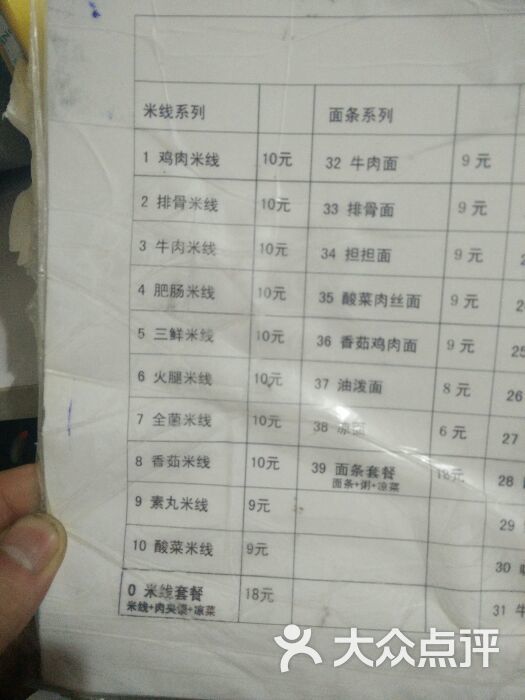 米线系列 面条系列
1 鸡肉米线 10元 32 牛肉面 9元
2 排骨米线 10元 33 排骨面 9元
3 牛肉米线 10元 34 担担面 9元
4 肥肠米线 10元 35 酸菜肉丝面 9元
5 三鲜米线 10元 36 香菇鸡肉面 9元 25
6 火腿米线 10元 37 油泼面 8元 26
7 全菌米线 10元 38 凉面 6元 27
8 香菇米线 10元 39 面条套餐 18元 28
面条+粥+凉菜
9 素丸米线 9元 29
10 酸菜米线 9元 30
0 米线套餐 18元 31 牛
米线+肉夹馍+凉菜
大众点评